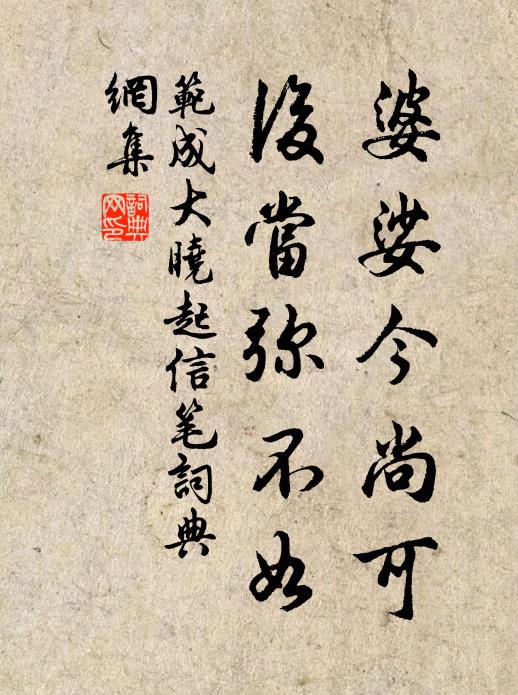 婆娑今尚可
後當弥不如
範成大曉起信笔詞典
網集
詞典网印